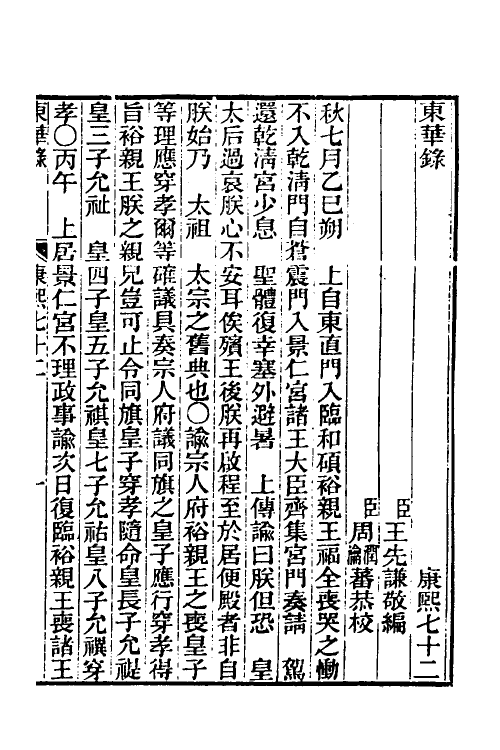 東華錄 康熙七十二
臣王先謙敬編
臣周潤蕃瀹蕃恭校
秋七月乙巳朔 上自東直門入臨和碩裕親王福全喪哭之慟
不入乾清門自蒼震門入景仁宮諸王大臣齊集宮門奏請 駕
還乾清宮少息 聖體復幸塞外避暑 上傳諭曰朕但恐 皇
太后過哀朕心不安耳俟殯王後朕再啟程至於居便殿者非自
朕始乃 太祖 太宗之舊典也〇諭宗人府裕親王之喪皇子
等理應穿孝爾等確議具奏宗人府議同旗之皇子應行穿孝得
旨裕親王朕之親兄豈可止令同旗皇子穿孝隨命皇長子允禔
皇三子允祉 皇四子皇五子允祺皇七子允祐皇八子允禩穿
孝〇丙午 上居景仁宮不理政事諭次日復臨裕親王喪諸王
東華錄 康熙七十二 一